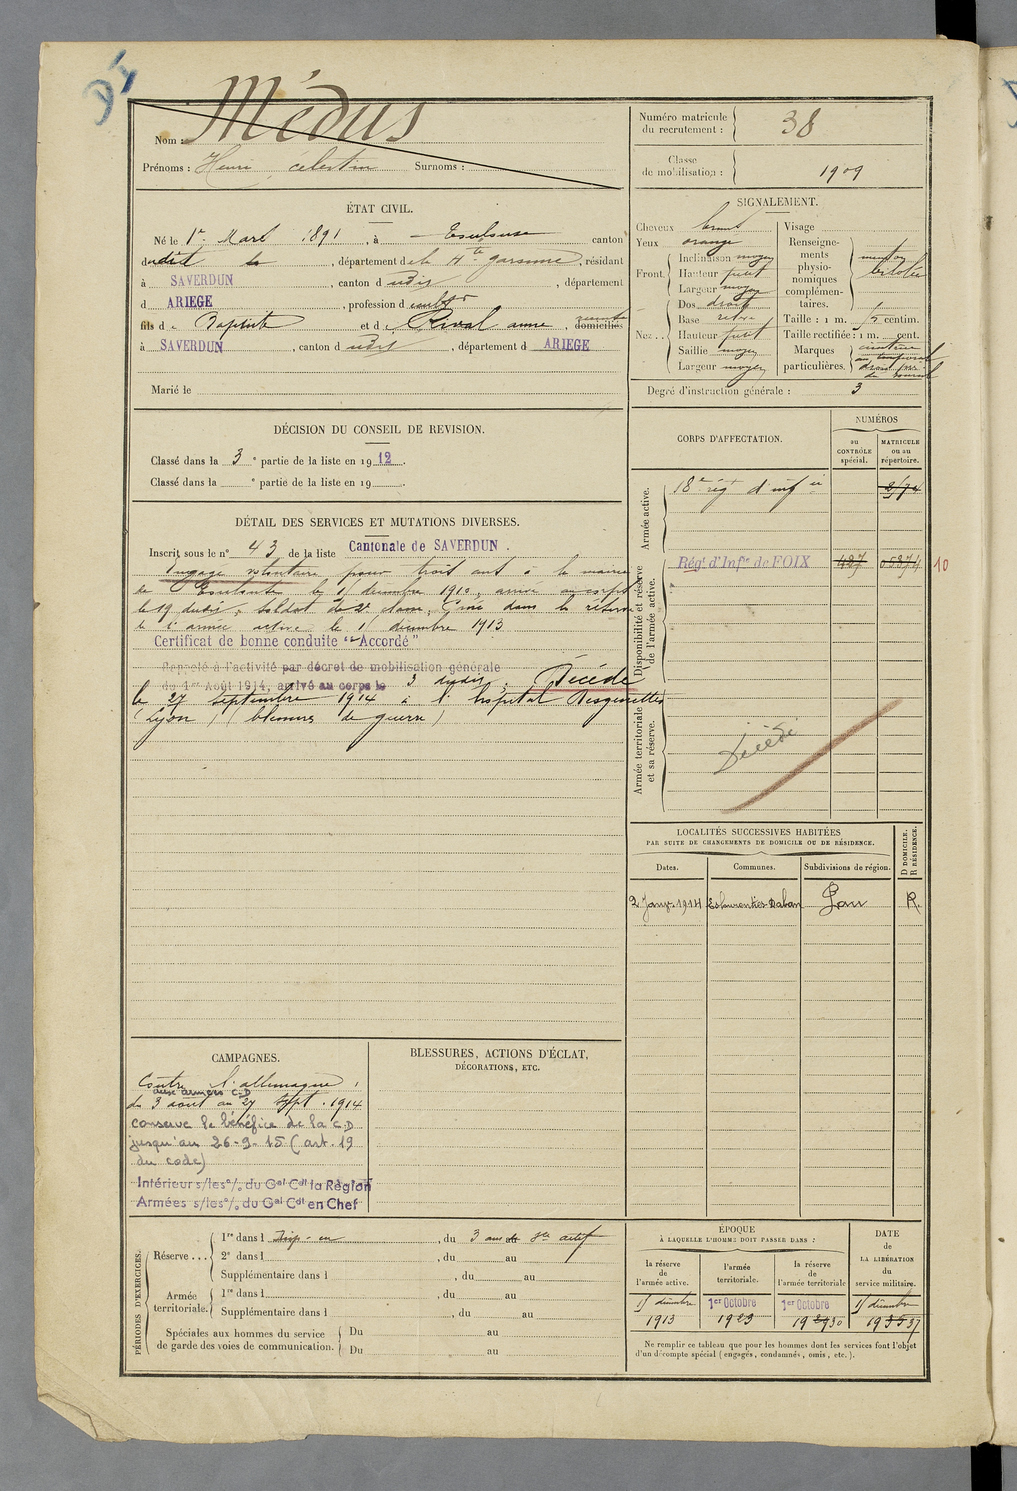 Nom : Médus
Prénoms : Henri, célestin Surnoms :
Numéro matricule du recrutement : 38
Classe de mobilisation : 1909
ÉTAT CIVIL.
Né le 1er Mars 1891, à Toulouse canton
dudit, département de la Hte garonne, résidant
à SAVERDUN, canton dudit, département
d ARIEGE, profession de cultr
fils de Baptiste et de Rival anne, domiciliés
à SAVERDUN, canton dudit, département d ARIEGE
Marié le
SIGNALEMENT.
Cheveux bruns
Yeux orange
Front. Inclinaison moyen
Hauteur petit
Largeur moyen
Nez . . Dos droit
Base relevé
Hauteur petit
Saillie moyen
Largeur moyen
Visage
Renseignements physionomiques complémentaires. menton
Taille : 1 m. centim.
Taille rectifiée : 1 m. cent.
Marques particulières. cicatrice
au temporal
Degré d'instruction générale : 3
DÉCISION DU CONSEIL DE REVISION.
Classé dans la 3e partie de la liste en 1912.
Classé dans la e partie de la liste en 19 .
DÉTAIL DES SERVICES ET MUTATIONS DIVERSES.
Inscrit sous le n° 43 de la liste Cantonale de SAVERDUN.
Engagé volontaire pour trois ans à la mairie
de Toulouse le 15 décembre 1910, arrivé au corps
le 19 dudit, soldat de 2e classe, Passé dans la réserve
de l'armée active le 15 décembre 1913
Certificat de bonne conduite "Accordé"
Rappelé à l'activité par décret de mobilisation générale
du 1er Août 1914, arrivé au corps le 3 dudit. Décédé
le 27 septembre 1914 à l'hopital Desgenettes
(Lyon) (blessures de guerre)
CORPS D'AFFECTATION.
NUMÉROS
au CONTRÔLE spécial.
MATRICULE ou au répertoire.
Armée active.
18e régt d'infie
Disponibilité et réserve de l'armée active.
Rég.t d'Inf.ie de FOIX 427 05374 10
Armée territoriale et sa réserve.
Décédé
LOCALITÉS SUCCESSIVES HABITÉES
PAR SUITE DE CHANGEMENTS DE DOMICILE OU DE RÉSIDENCE.
D DOMICILE. R RÉSIDENCE.
Dates. Communes. Subdivisions de région.
2 Janv. 1914 Eslourenties-Daban Pau R.
CAMPAGNES.
Contre l'allemagne :
aux armées C.D
du 3 aout au 27 sept. 1914
conserve le bénéfice de la C.D
jusqu'au 26-9-15 (art. 19
du code)
Intérieur s/les o/. du Gal Cdt la Région
Armées s/les o/. du Gal Cdt en Chef
BLESSURES, ACTIONS D'ÉCLAT,
DÉCORATIONS, ETC.
PÉRIODES D'EXERCICES.
Réserve . . . 1re dans l , du 3 ans
2e dans l , du au
Supplémentaire dans l , du au
Armée territoriale. 1re dans l , du au
Supplémentaire dans l , du au
Spéciales aux hommes du service de garde des voies de communication. Du au
Du au
ÉPOQUE
À LAQUELLE L'HOMME DOIT PASSER DANS :
la réserve de l'armée active.
l'armée territoriale.
la réserve de l'armée territoriale
DATE de LA LIBÉRATION du service militaire.
15 décembre 1913
1er Octobre 1923
1er Octobre 192930
15 décembre 193537
Ne remplir ce tableau que pour les hommes dont les services font l'objet
d'un décompte spécial (engagés, condamnés, omis, etc.).